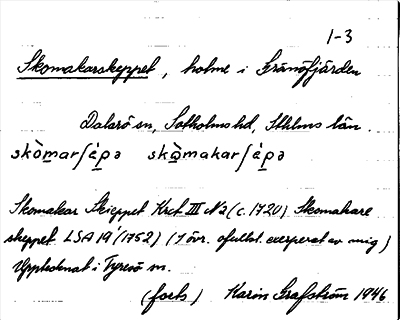 1-3
Skomakarskeppet, holme i Gränöfjärden
Dalarö sn, Sotholms hd, Sthlms län.
skòmarʃépə skòmakarʃépə
Skomakar Skieppet Krct III No 2 (c. 1720) Skomakare
skeppet LSA 19 (1752) (I övr. ofullst. excerperat av mig)
Upptecknat i Tyresö sn.
(forts) Karin Grafström 1946